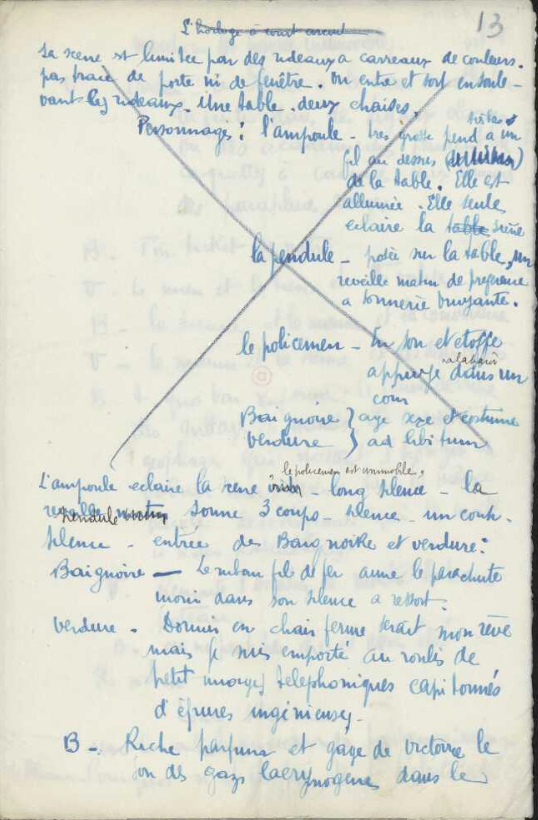 L'horloge à court circuit
13
La scene est limitée par des rideaux a carreaux de couleurs.
pas trace de porte ni de fenêtre. On entre et sort en soule-
vant les rideaux. Une table. deux chaises.
Personnages : l'ampoule - très grosse pend a un
fil au dessus
de la table. Elle est
allumée. Elle seule
eclaire la table scène
la pendule - posée sur la table, un
reveille matin de preference
a sonnerie bruyante.
le policeman - En son et etoffe
appuyé dans un
coin
Baignoire } age sexe et costume
Verdure } ad libitum
le policeman est immobile.
L'ampoule eclaire la scene - long silence - la
pendule sonne 3 coups - silence - un coup.
silence - entrée de Baignoire et Verdure :
Baignoire — Le ruban fil de fer aime le parachute
moisi dans son silence a ressort.
Verdure - Dormir en chair ferme serait mon rêve
mais je suis emporté au roulis de
petit nuages telephoniques capitonnés
d'épures ingenieuses -
B - Riche parfum et gage de victoire le
son des gazs lacrymogenes dans le